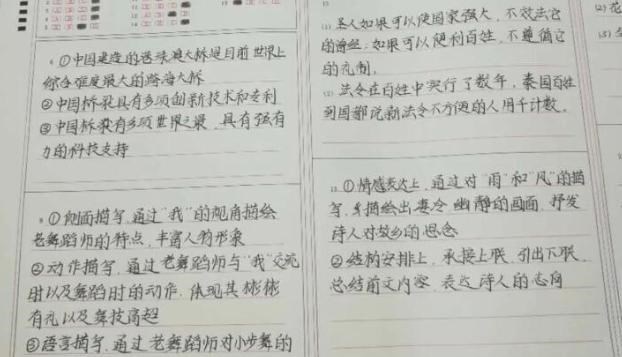 6 ①中国建造的港珠澳大桥是目前世界上
综合难度最大的跨海大桥
②中国桥梁具有多项创新技术和专利
③中国桥梁有多项世界之最，具有强有
力的科技支持
9 ①侧面描写，通过“我”的视角描绘
老舞蹈师的特点，丰富人物形象
②动作描写，通过老舞蹈师与“我”交流
时以及舞蹈时的动作，体现其彬彬
有礼以及舞技高超
③语言描写，通过老舞蹈师对小步舞的
13
(1) 圣人如果可以使国家强大，不效法它
的旧法；如果可以便利百姓，不遵循它
的礼制。
(2) 法令在百姓中实行了数年，秦国百姓
到国都说新法令不方便的人用千计数。
15 ①情感表达上，通过对“雨”和“风”的描
写，描绘出凄冷、幽静的画面，抒发
诗人对故乡的思念
②结构安排上，承接上联，引出下联，
总结前文内容，表达诗人的志向
(2) 花
(3)